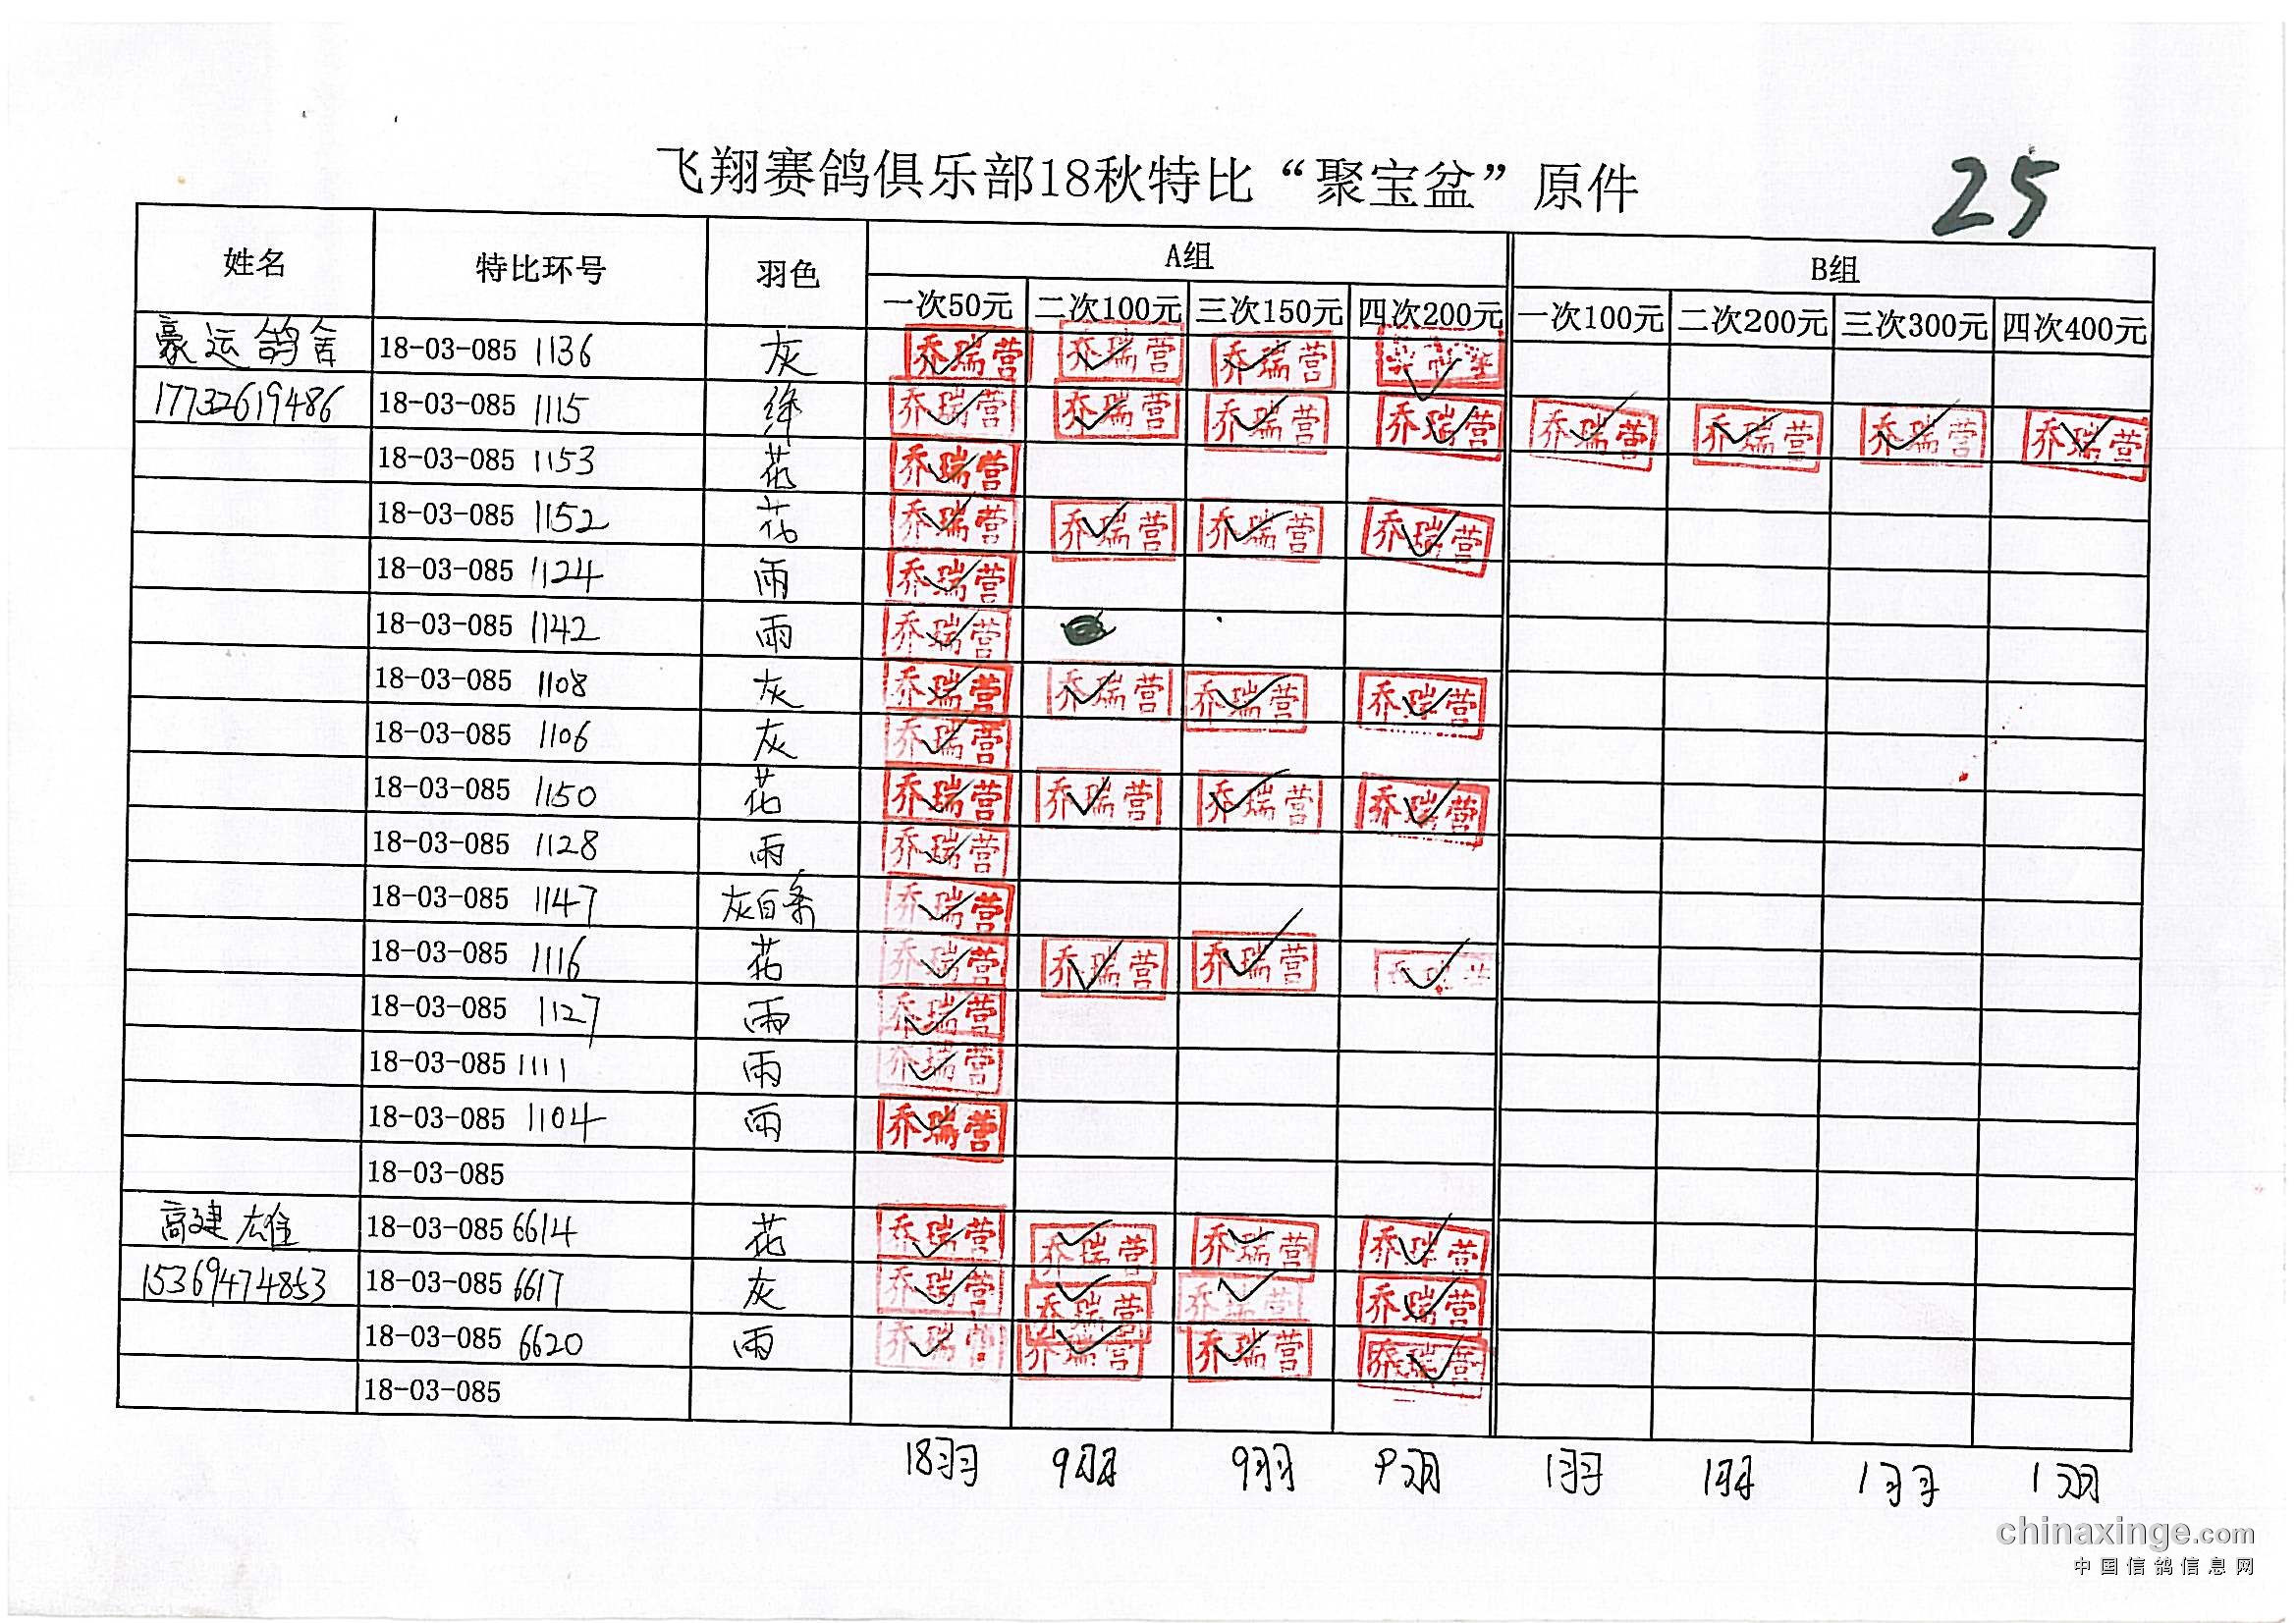 飞翔赛鸽俱乐部18秋特比“聚宝盆”原件 25
姓名 特比环号 羽色 A组 B组
一次50元 二次100元 三次150元 四次200元 一次100元 二次200元 三次300元 四次400元
豪运鸽舍 18-03-085 1136 灰 乔瑞营 乔瑞营 乔瑞营
17732619486 18-03-085 1115 绛 乔瑞营 乔瑞营 乔瑞营 乔瑞营 乔瑞营 乔瑞营 乔瑞营 乔瑞营
18-03-085 1153 花 乔瑞营
18-03-085 1152 花 乔瑞营 乔瑞营 乔瑞营 乔瑞营
18-03-085 1124 雨 乔瑞营
18-03-085 1142 雨 乔瑞营
18-03-085 1108 灰 乔瑞营 乔瑞营 乔瑞营 乔瑞营
18-03-085 1106 灰 乔瑞营
18-03-085 1150 花 乔瑞营 乔瑞营 乔瑞营 乔瑞营
18-03-085 1128 雨 乔瑞营
18-03-085 1147 灰白条 乔瑞营
18-03-085 1116 花 乔瑞营 乔瑞营 乔瑞营 乔瑞营
18-03-085 1127 雨 乔瑞营
18-03-085 1111 雨 乔瑞营
18-03-085 1104 雨 乔瑞营
18-03-085
高建雄 18-03-085 6614 花 乔瑞营 乔瑞营 乔瑞营 乔瑞营
15369474853 18-03-085 6617 灰 乔瑞营 乔瑞营 乔瑞营 乔瑞营
18-03-085 6620 雨 乔瑞营 乔瑞营 乔瑞营 乔瑞营
18-03-085
18羽 9羽 9羽 9羽 1羽 1羽 1羽 1羽
chinaxinge.com
中国信鸽信息网